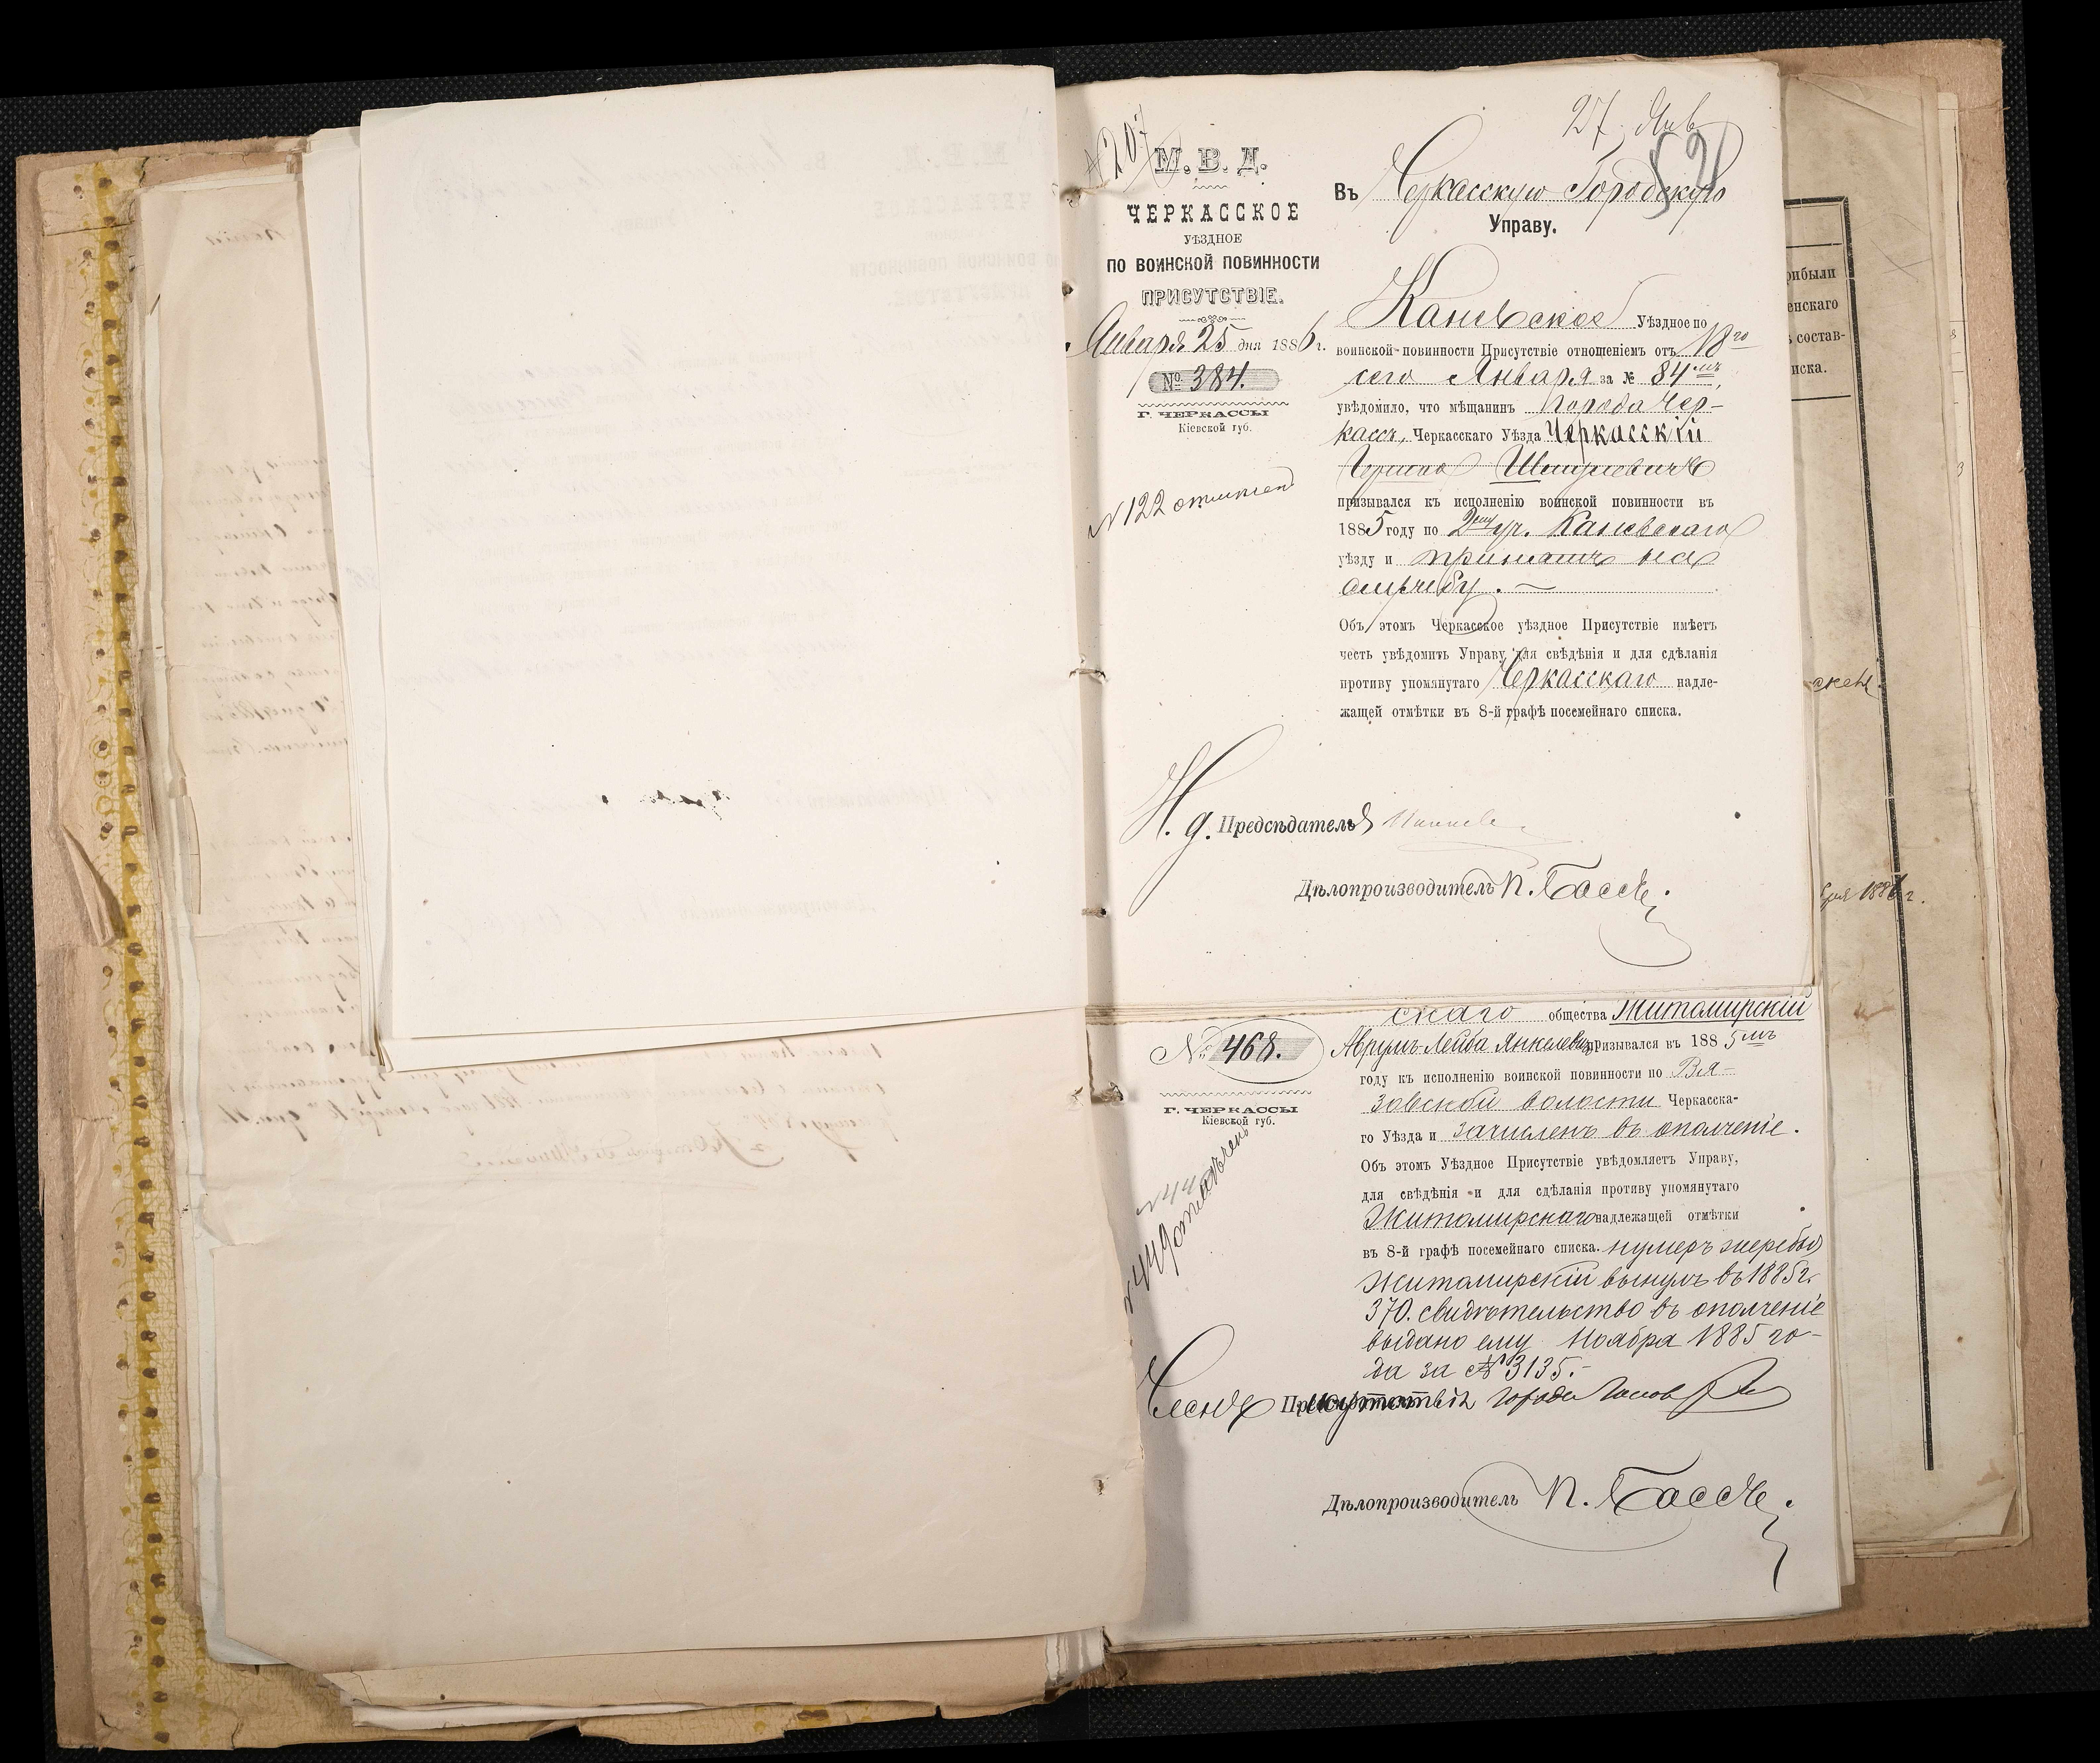 27. Янв
№207
М. В. Д.
ЧЕРКАССКОЕ
УѢЗДНОЕ
ПО ВОИНСКОЙ ПОВИННОСТИ
ПРИСУТСТВІЕ.
Января 25 дня 1886 г.
№ 384.
Г. ЧЕРКАССЫ
Кіевской губ.
№ 122
Въ Черкасскую Городскую
Управу.
Каневское Уѣздное по
воинской повинности Присутствіе отношеніемъ отъ 18го
сего Января за № 84мъ,
увѣдомило, что мѣщанинъ города Чер-
кассъ, Черкасскаго Уѣзда Черкасскій
Шмулевичъ
призывался къ исполненію воинской повинности въ
1885 году по 2му уч. Каневскаго
уѣзду и принятъ на
службу. —
Объ этомъ Черкасское уѣздное Присутствіе имѣетъ
честь увѣдомить Управу для свѣдѣнія и для сдѣланія
противу упомянутаго Черкасскаго надле-
жащей отмѣтки въ 8-й графѣ посемейнаго списка.
И. д. Предсѣдателя
Дѣлопроизводитель П. Бассъ.
скаго общества Житомирскій
№ 468.
Аврумъ-Лейба Янкелевъ призывался въ 1885мъ
году къ исполненію воинской повинности по Вя-
Г. ЧЕРКАССЫ
Кіевской губ.
зовской волости Черкасска-
го Уѣзда и зачисленъ въ ополченіе.
Объ этомъ Уѣздное Присутствіе увѣдомляетъ Управу,
для свѣдѣнія и для сдѣланія противу упомянутаго
Житомирскаго надлежащей отмѣтки
въ 8-й графѣ посемейнаго списка. нумеръ жеребья
Житомирскій вынулъ въ 1885 г.
370. свидѣтельство въ ополченіе
выдано ему Ноября 1885 го-
да за № 3135.-
№ 449 отмѣченъ
Членъ Присутствія
Дѣлопроизводитель П. Бассъ.
рибыли
енскаго
состав-
иска.
1886 г.